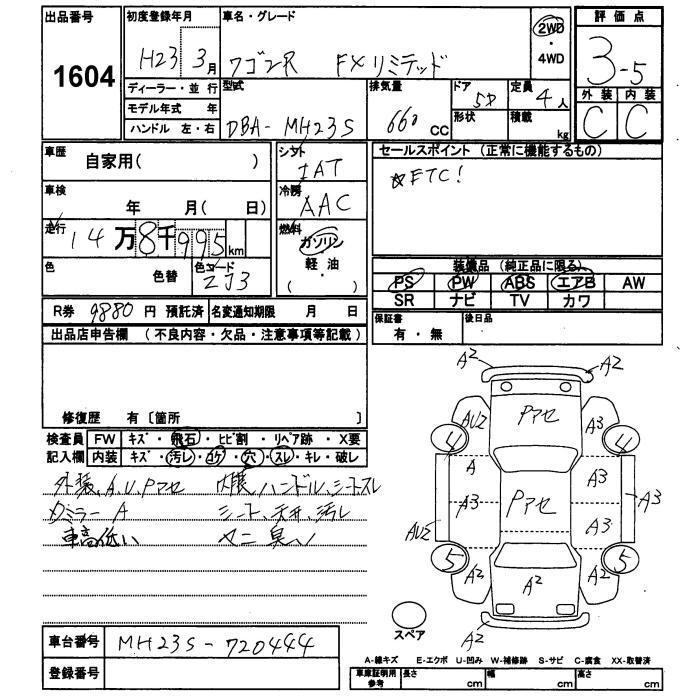 出品番号
1604
初度登録年月
H23 3月
車名・グレード
ワゴンR FXリミテッド
2WD
・
4WD
評価点
3-5
外装 内装
C C
ディーラー・並行
モデル年式 年
ハンドル 左・右
型式
DBA-MH23S
排気量
660 CC
ドア
5D
形状
定員
4人
積載
kg
車歴
自家用( )
車検
年 月( 日)
走行
14万8千995km
色
色替
色コード
ZJ3
シフト
IAT
冷房
AAC
燃料
ガソリン
・
軽油
( )
セールスポイント (正常に機能するもの)
☆ETC!
装備品 (純正品に限る)
PS PW ABS エアB AW
SR ナビ TV カワ
保証書
有・無
後日品
R券 9880 円 預託済 名変通知期限 月 日
出品店申告欄 (不良内容・欠品・注意事項等記載)
修復歴 有〔箇所 〕
検査員 FW キズ・飛石・ヒビ割・リペア跡・X要
記入欄 内装 キズ・汚レ・コゲ・穴・スレ・キレ・破レ
外装、A、U、Pアセ
ハンドル、シートスレ
ミラー A
シート、天井、汚レ
車高低い
ヤニ臭い
A2 A2
AU2 Pアセ A3
4 4
A A3
A3 Pアセ A3 A3
AU2
5 5
A2 A2 A2
A2
スペア
車台番号 MH23S-720444
登録番号
A-線キズ E-エクボ U-凹み W-補修跡 S-サビ C-腐食 XX-取替済
車庫証明用
参考
長さ cm 幅 cm 高さ cm